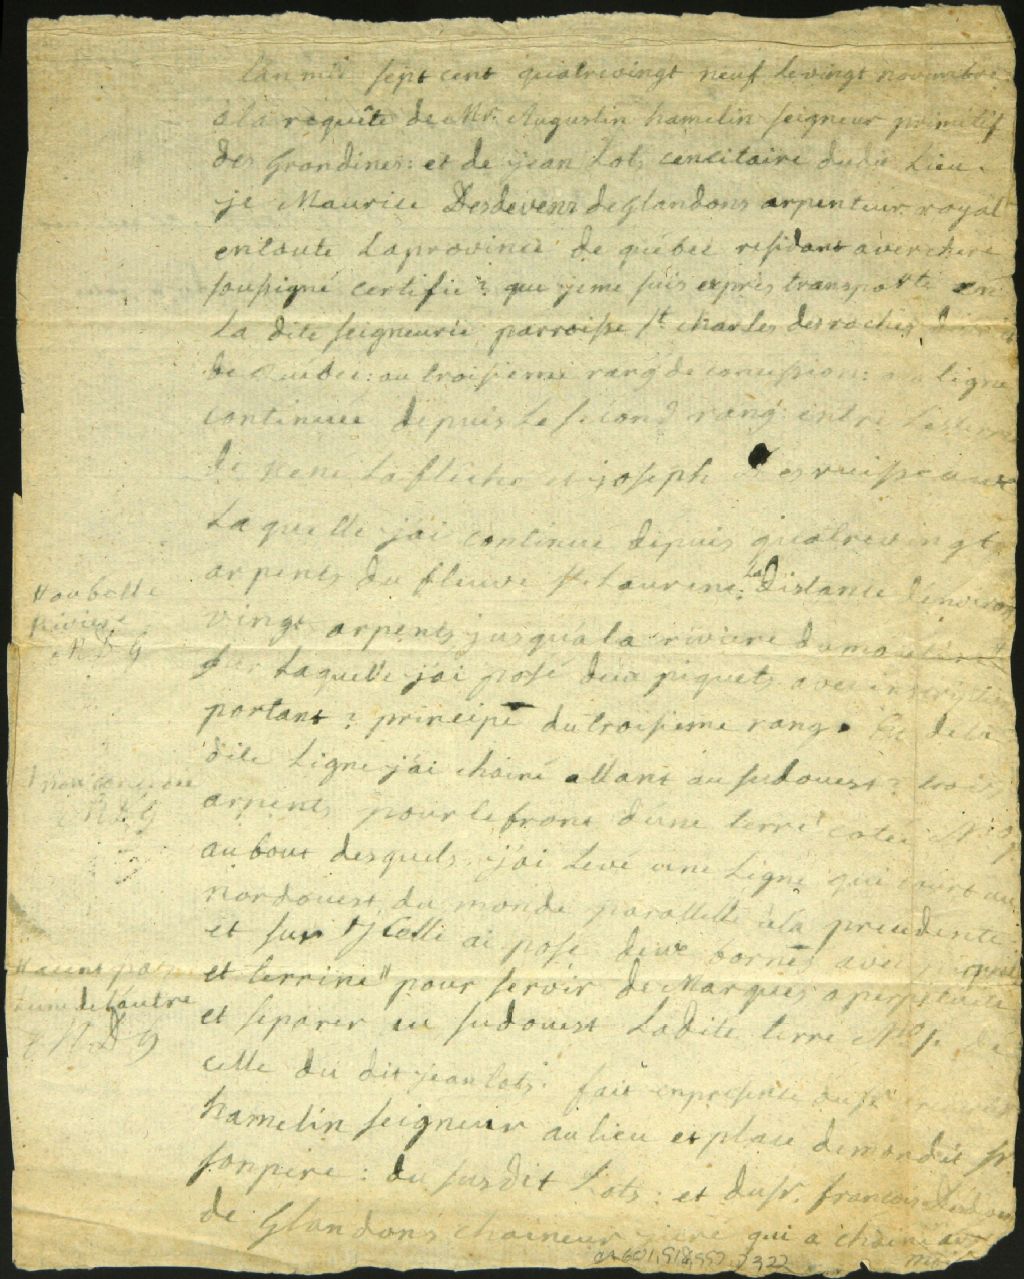 Lan mil sept cent quatrevingt neuf le vingt novembre
a la requête de Mr. Augustin hamelin seigneur primitif
des Grondines: et de jean Lots censitaire dudit Lieu.
je Maurice Desdevens de Glandons arpenteur royal
en toute La province de québec residant a verchere
soussigné certifie? que je me suis exprès transporté en
La dite seigneurie parroisse st charles des roches,
de Quebec: au troisieme rang de concession: a ligne
continuée depuis Le second rang entre Les terres
de René Laflèche et joseph Desruisseaux
Laquelle j'ai continué depuis quatrevingt
arpents du fleuve st Laurent: La distance denviron
vingt arpents jusqu'a la riviere du
sur Laquelle j'ai posé deux piquets avec inscription
portant? principe du troisieme rang. Et de la
dite Ligne j'ai chainé allant au sudouest? trois
arpents pour le front d'une terre cotée No J
au bout desquels j'ai Levé une Ligne qui court au
nordouest du monde parallelle à la precedente
et sur Icelle ai posé deux bornes avec
et terrine" pour servir de Marques a perpetuité
et separer au sudouest Ladite terre No J. de
celle du dit jean lots: fait en presence du sr
hamelin seigneur au lieu et place de mondit sr.
son pere: du susdit Lots: et du sr. francois Desdevens
de Glandons chaineur juré qui a chainé avec
moi
# ou belle
riviere
M D G
non
M D G
#
l'une de l'autre
M D G